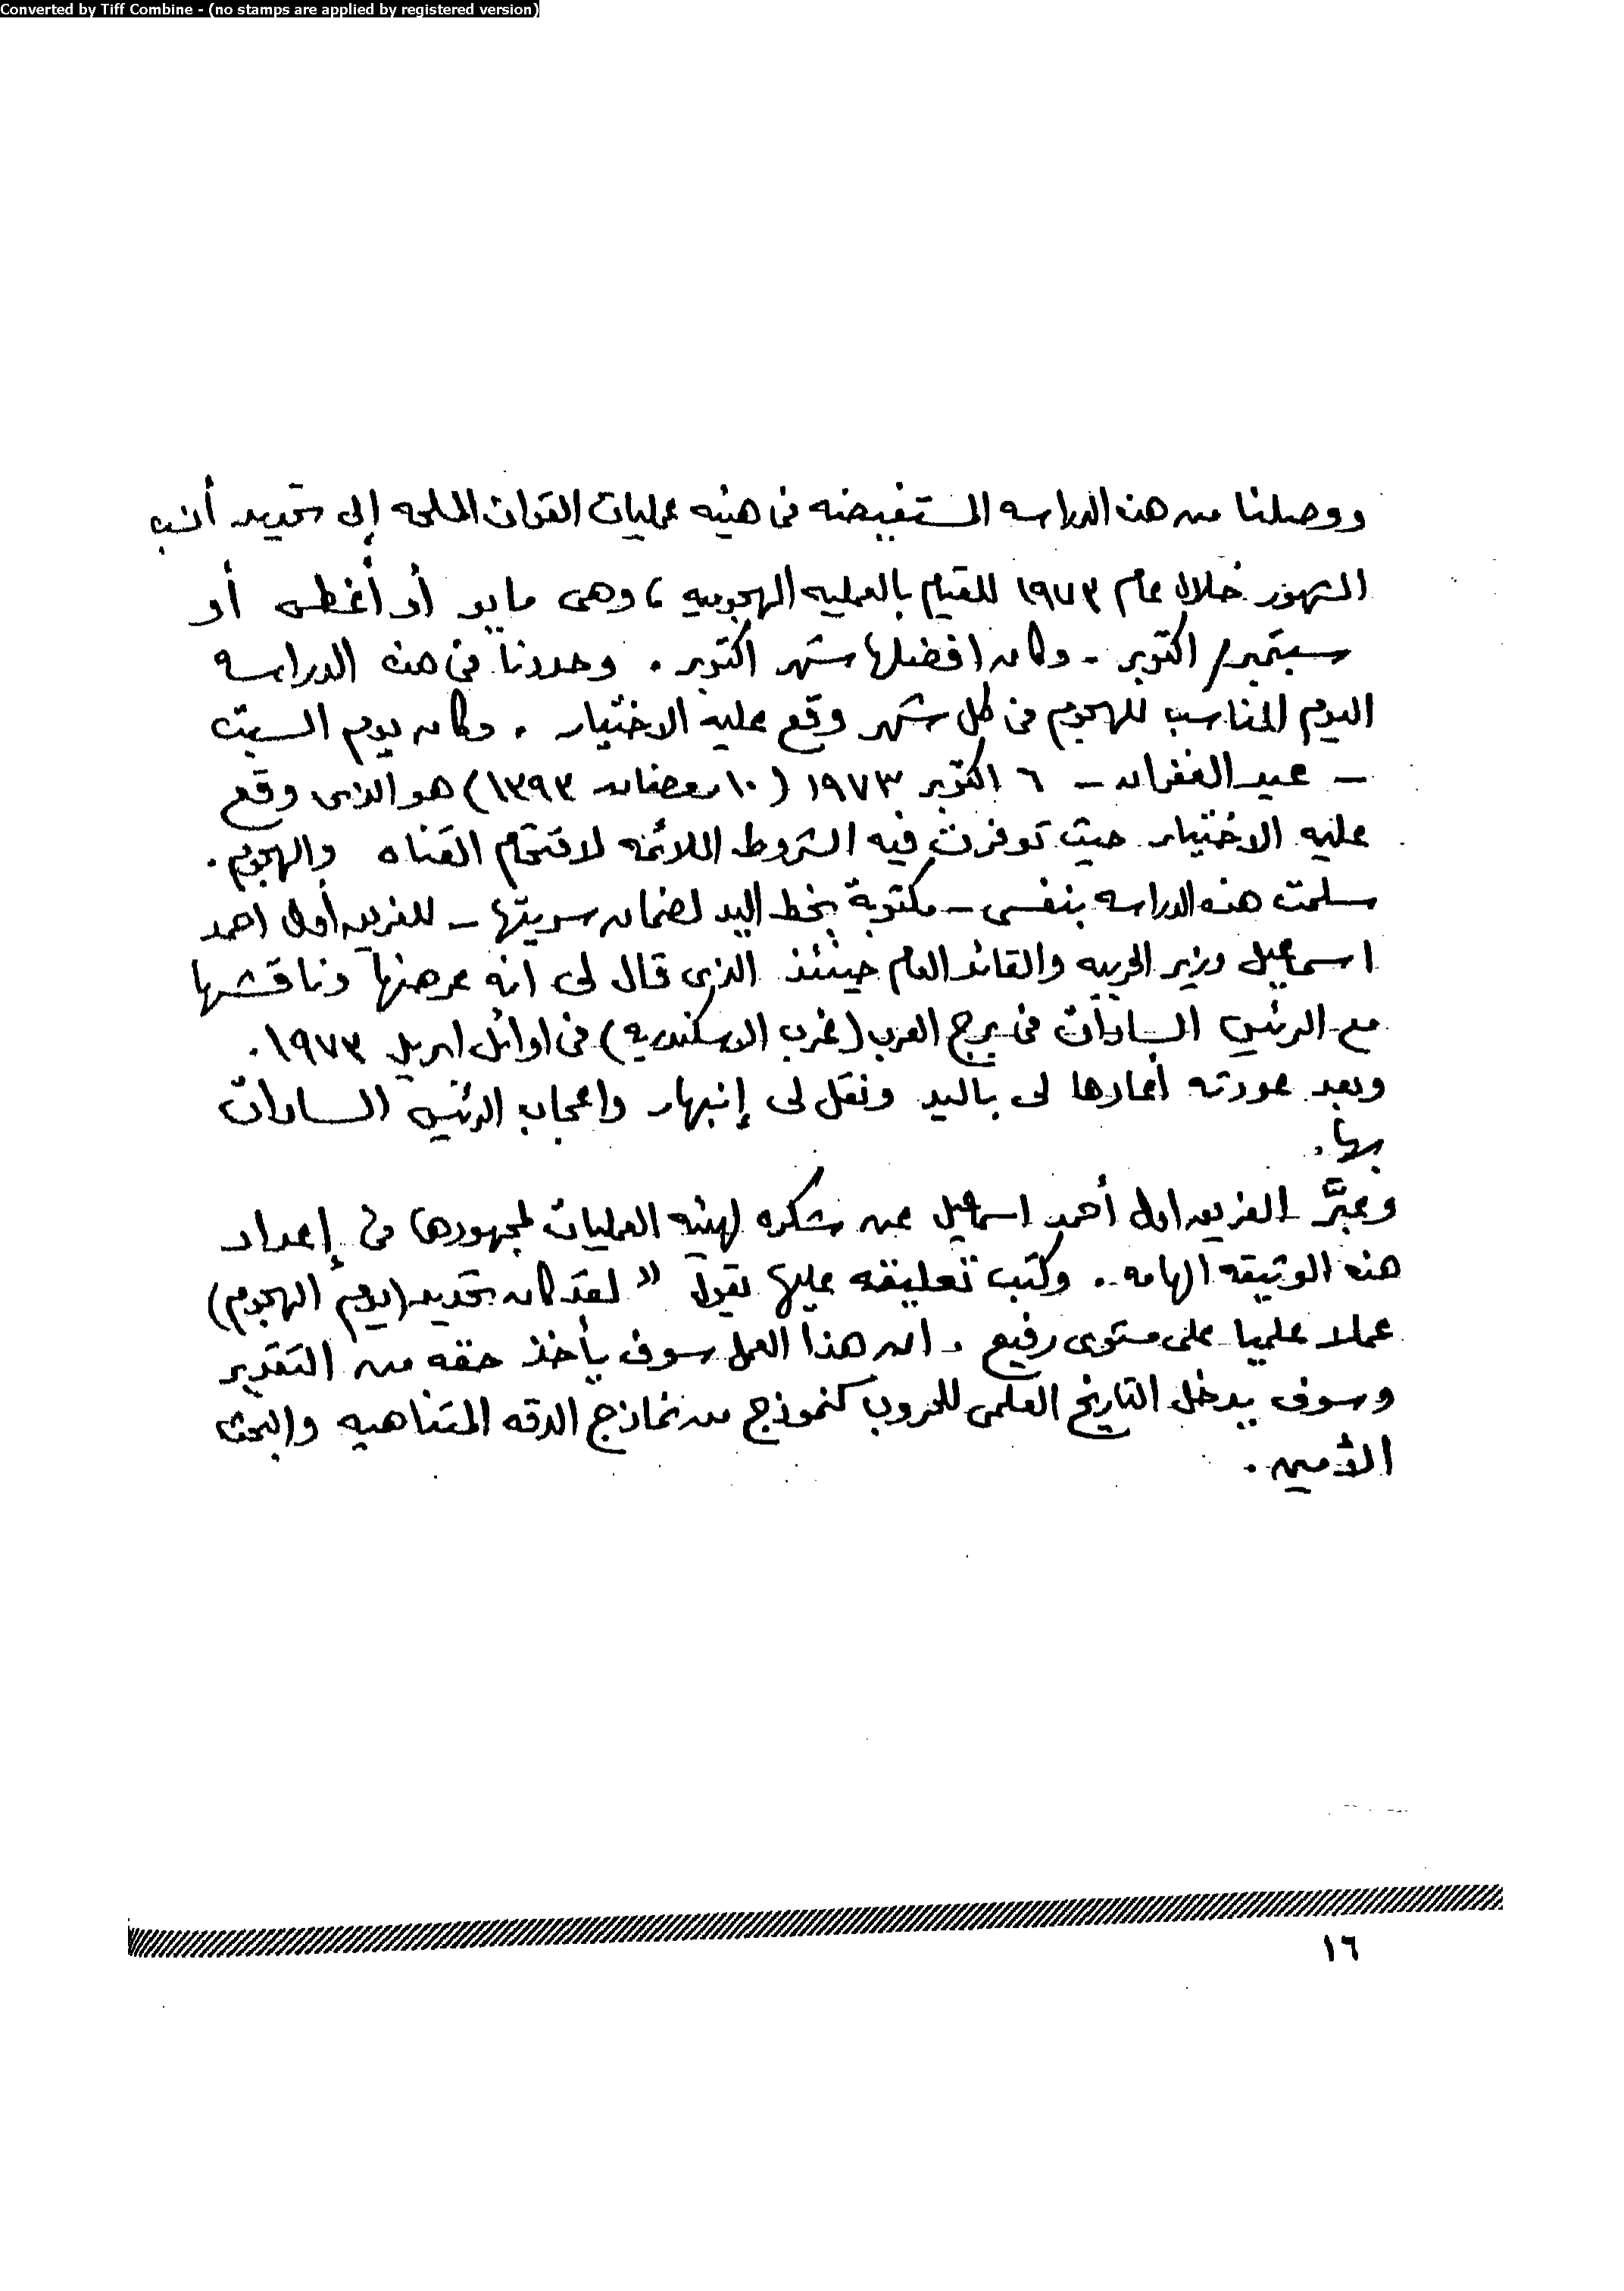 Converted by Tiff Combine - (no stamps are applied by registered version)
ووصلنا من هذه الدراسه المستفيضه فى هيئه عمليات القوات المسلحه إلى تحديد أنسب
الشهور خلال عام ١٩٧٣ للقيام بالعمليه الهجوميه ، وهى مايو أو أغسطس أو
سبتمبر / اكتوبر - وكان افضلها شهر اكتوبر . وحددنا فى هذه الدراسه
اليوم المناسب للهجوم فى كل شهر وقع عليه الاختيار . وكان يوم السبت
- عيد الغفران - ٦ اكتوبر ١٩٧٣ (١٠ رمضان ١٣٩٣) هو الذى وقع
عليه الاختيار حيث توفرت فيه الشروط اللائمه لاقتحام القناه والهجوم .
سلمت هذه الدراسه بنفسى - مكتوبة بخط اليد لضمان سريتها - للفريق أول احمد
اسماعيل وزير الحربيه والقائد العام حينئذ الذى قال لى انه عرضها وناقشها
مع الرئيس السادات فى برج العرب (غرب الاسكندريه) فى اوائل ابريل ١٩٧٣ .
وبعد عودته أعادها لى باليد ونقل لى إنبهار واعجاب الرئيس السادات
بها .
وعبَّر الفريق اول أحمد اسماعيل عن شكره لهيئه العمليات لمجهودها فى إعداد
هذه الوثيقه الهامه .. وكتب تعليقه عليها بقول " لقد كان تحديد (يوم الهجوم)
عملا علميا على مستوى رفيع . ان هذا العمل سوف يأخذ حقه من التقدير
وسوف يدخل التاريخ العلمى للحروب كنموذج من نماذج الدقه المتناهيه والبحث
الأمين .
١٦